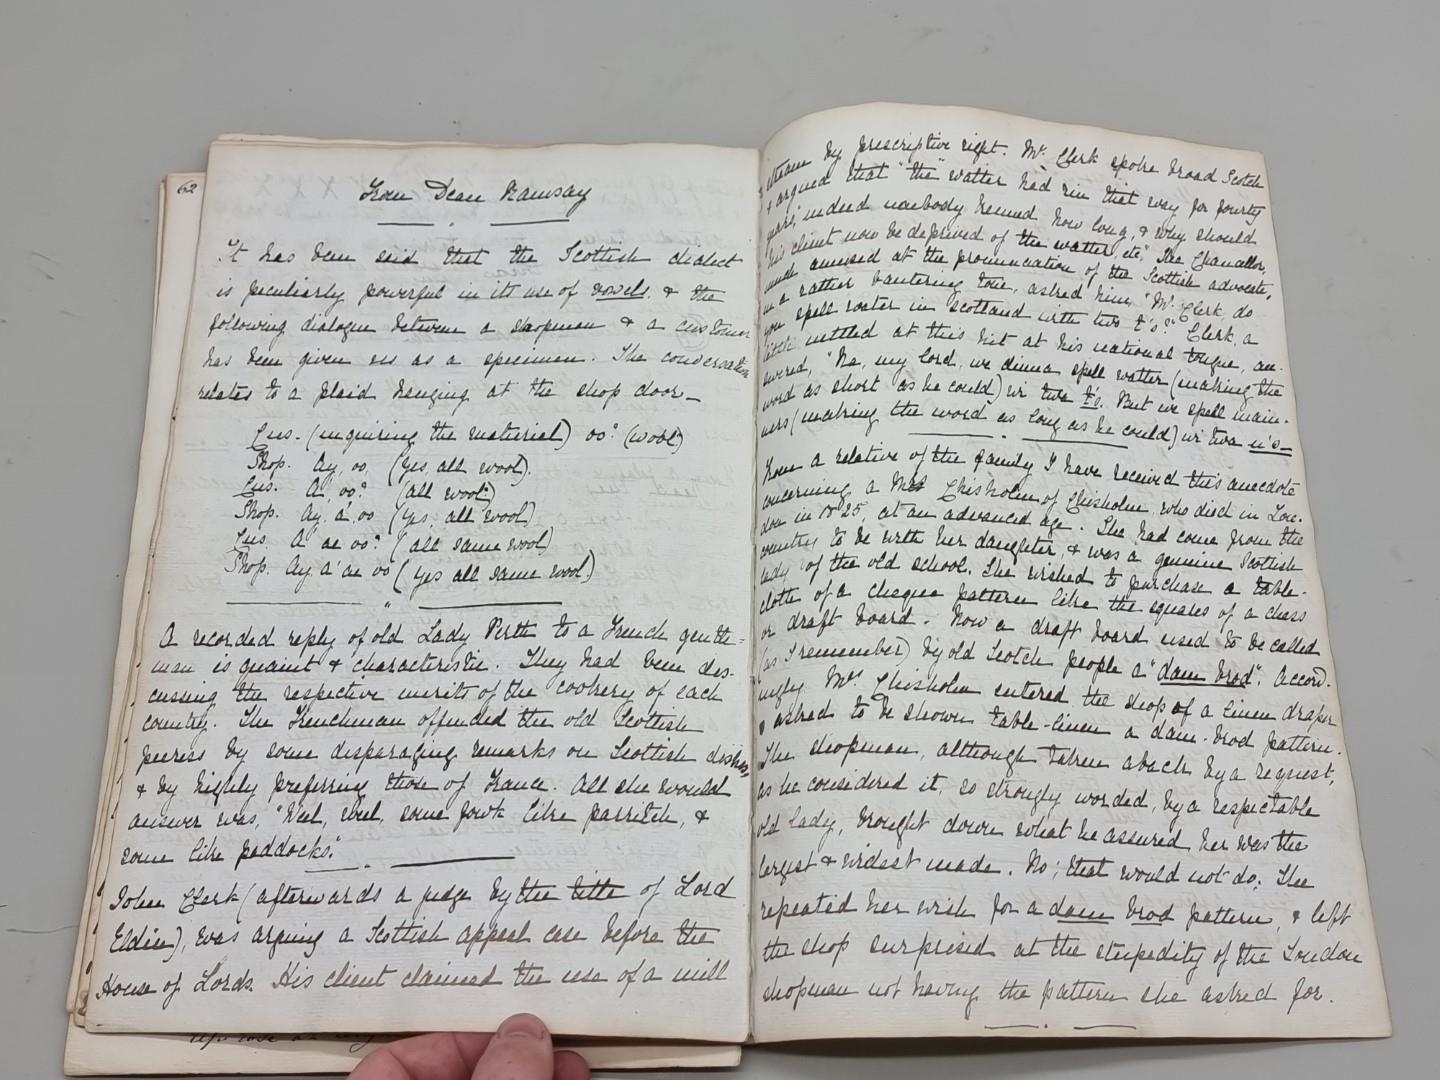 62
From Dean Ramsay
It has been said that the Scottish dialect
is peculiarly powerful in its use of vowels, & the
following dialogue between a shopman & a customer
has been given us as a specimen. The conversation
relates to a plaid hanging at the shop door_
Cus. (inquiring the material) oo? (wool?)
Shop. Ay, oo (yes, all wool).
Cus. A' oo? (all wool?)
Shop. Ay, a' oo (yes, all wool)
Cus. A' ae oo? (all same wool)
Shop. Ay a' ae oo (yes all same wool.)
A recorded reply of old Lady Perth to a French gentle=
man is quaint & characteristic. They had been dis-
cussing the respective merits of the cookery of each
country. The Frenchman offended the old Scottish
peeress by some disparaging remarks on Scottish dishes,
& by highly preferring those of France. All she would
answer was, "Weel, weel, some fowk like parritch, &
some like paddocks."
John Clerk (afterwards a judge by the title of Lord
Eldin), was arguing a Scottish appeal case before the
House of Lords. His client claimed the use of a mill
stream by prescriptive right. Mr. Clerk spoke broad Scotch
& argued that "the watter had rin that way for fourty
years," indeed naebody kenned how long, & why should
his client now be deprived of the watter, etc". The Chancellor,
much amused at the pronunciation of the Scottish advocate,
in a rather bantering tone, asked him "Mr. Clerk, do
you spell water in Scotland with two t's?" Clerk, a
little nettled at this hit at his national tongue, an-
swered, "Na, my Lord, we dinna spell watter (making the
word as short as he could) wi' twa t's. But we spell main-
ners (making the word as long as he could) wi' twa n's_
From a relative of the family I have received this anecdote
concerning a Mrs Chisholm of Chisholm, who died in Lon-
don in 1825 at an advanced age. She had come from the
country to be with her daughter, & was a genuine Scottish
lady of the old school. She wished to purchase a table-
cloth of a cheque pattern like the squares of a chess
or draft board. Now a draft board used to be called
(as I remember) by old Scotch people a "dam brod". Accord-
ingly Mrs. Chisholm entered the shop of a linen draper
& asked to be shown table-linen a dam-brod pattern.
The shopman, although taken aback by a request,
as he considered it, so strongly worded, by a respectable
old lady, brought down what he assured her was the
largest & widest made. No; that would not do; She
repeated her wish for a dam brod pattern, & left
the shop surprised at the stupidity of the London
shopman not having the pattern she asked for.